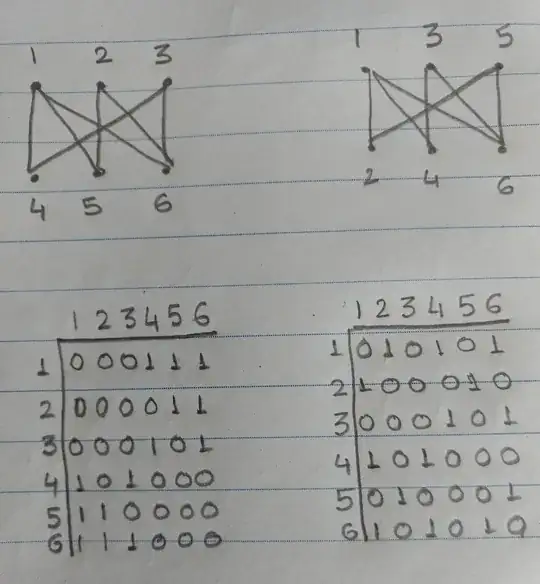 1 2 3
1 3 5
4 5 6
2 4 6
1 2 3 4 5 6
1 0 0 0 1 1 1
2 0 0 0 0 1 1
3 0 0 0 1 0 1
4 1 0 1 0 0 0
5 1 1 0 0 0 0
6 1 1 1 0 0 0
1 2 3 4 5 6
1 0 1 0 1 0 1
2 1 0 0 0 1 0
3 0 0 0 1 0 1
4 1 0 1 0 0 0
5 0 1 0 0 0 1
6 1 0 1 0 1 0